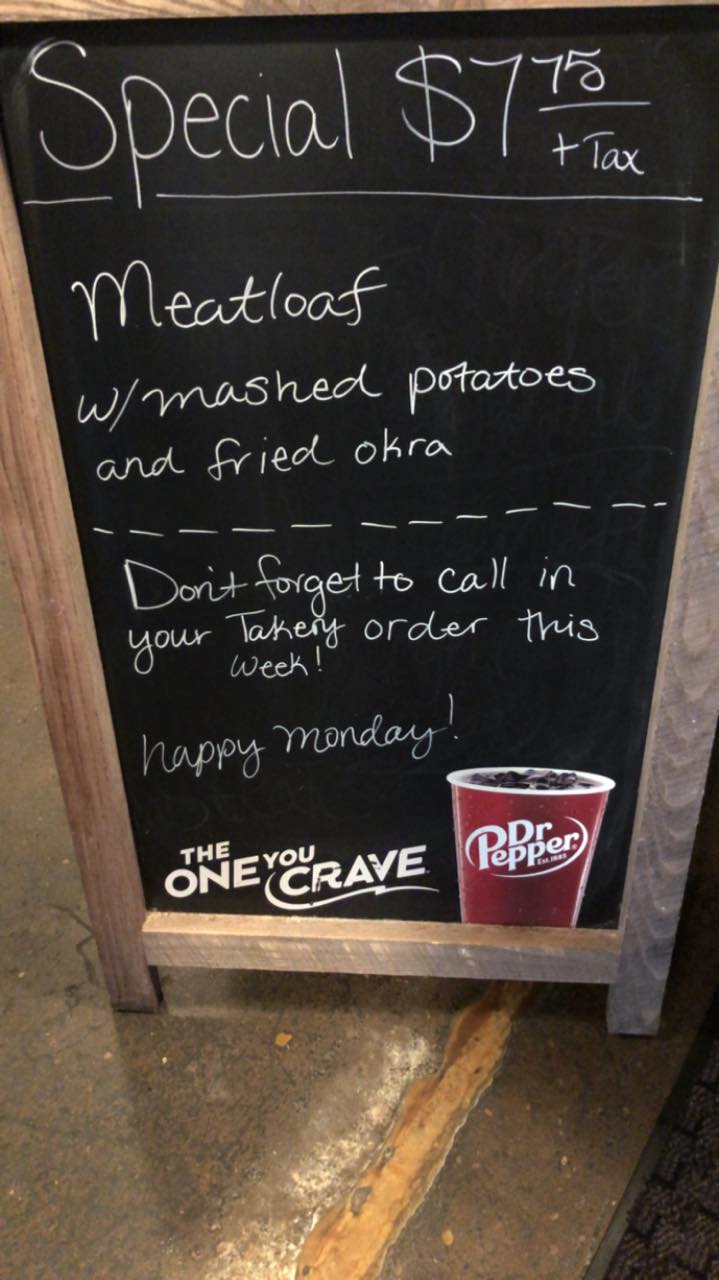 Special $7 75
+ Tax
Meatloaf
w/mashed potatoes
and fried okra
Don't forget to call in
your Takery order this
week!
happy monday!
THE
ONE YOU
CRAVE
Dr
Pepper
Est. 1885